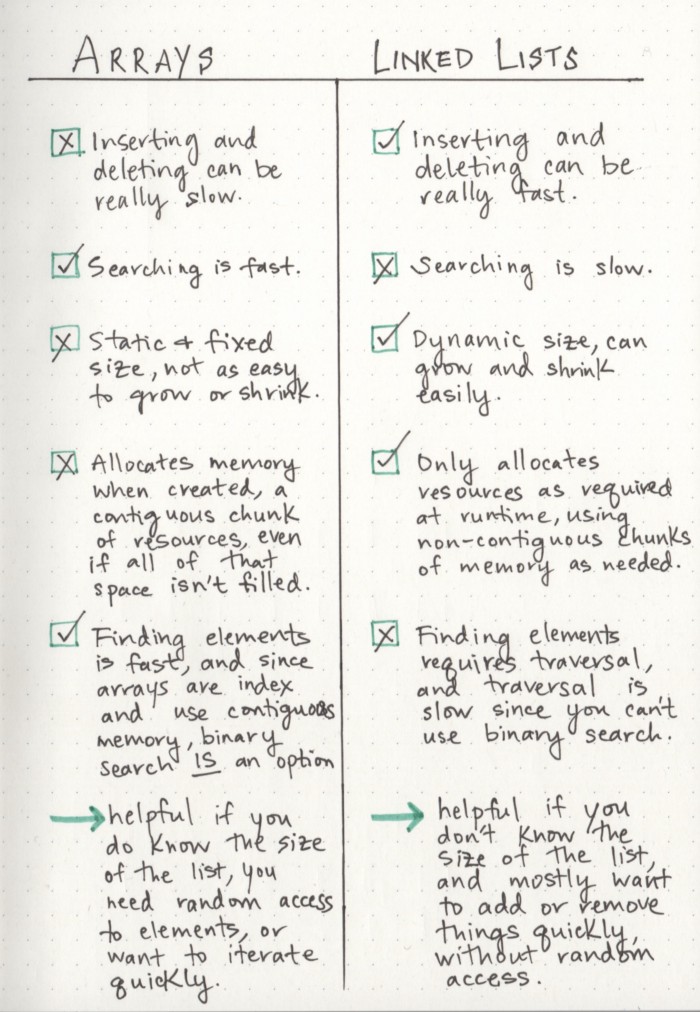 ARRAYS
Inserting and
deleting can be
really slow.
Searching is fast.
Static + fixed
size, not as easy
to grow or shrink.
Allocates memory
when created, a
contiguous chunk
of resources, even
if all of that
space isn't filled.
Finding elements
is fast, and since
arrays are index
and use contiguous
memory, binary
search IS an option
helpful if you
do know the size
of the list, you
need random access
to elements, or
want to iterate
quickly.
LINKED LISTS
Inserting and
deleting can be
really fast.
Searching is slow.
Dynamic size, can
grow and shrink
easily.
Only allocates
resources as required
at runtime, using
non-contiguous chunks
of memory as needed.
Finding elements
requires traversal,
and traversal is
slow since you can't
use binary search.
helpful if you
don't know the
size of the list,
and mostly want
to add or remove
things quickly,
without random
access.